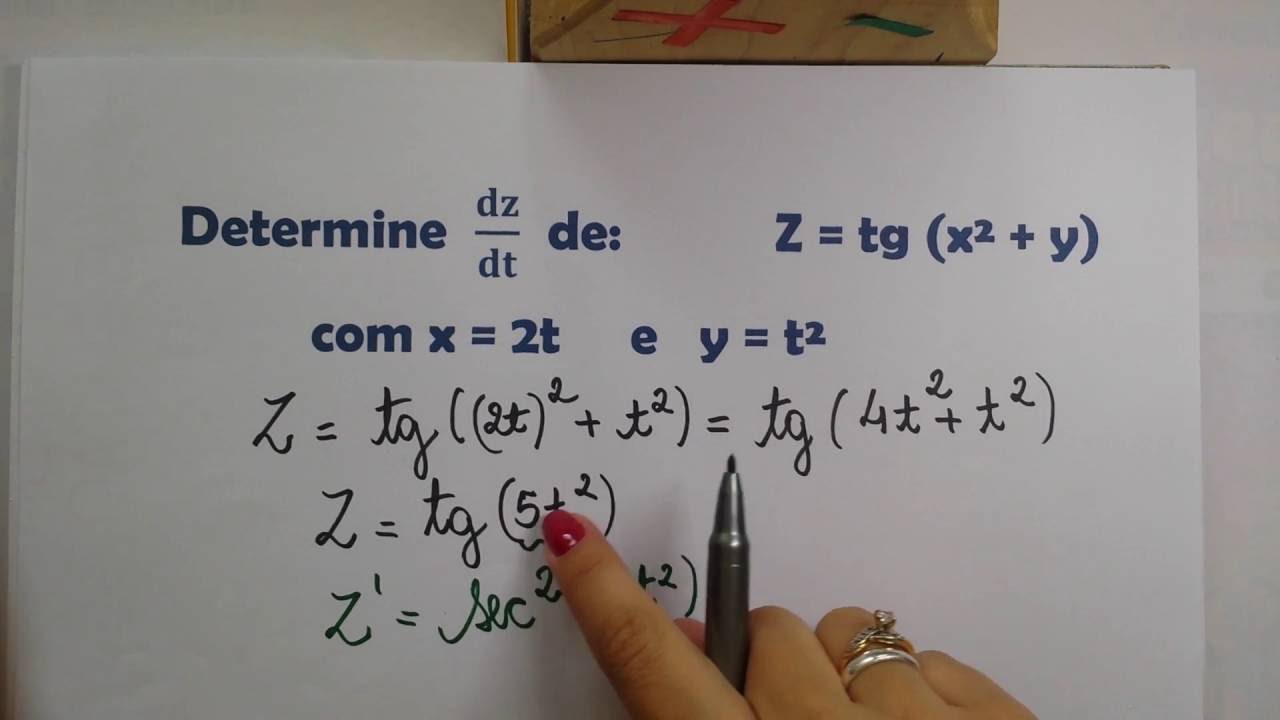 Determine dz/dt de: Z = tg (x² + y)
com x = 2t e y = t²
Z = tg((2t)² + t²) = tg(4t² + t²)
Z = tg(5t²)
Z' = sec² t²)